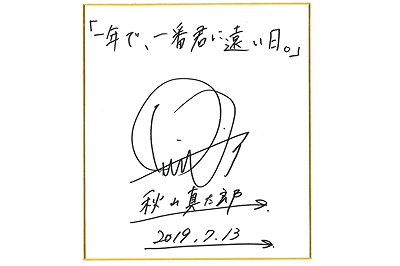 「一年で、一番君に遠い日。」
秋山真太郎
2019.7.13